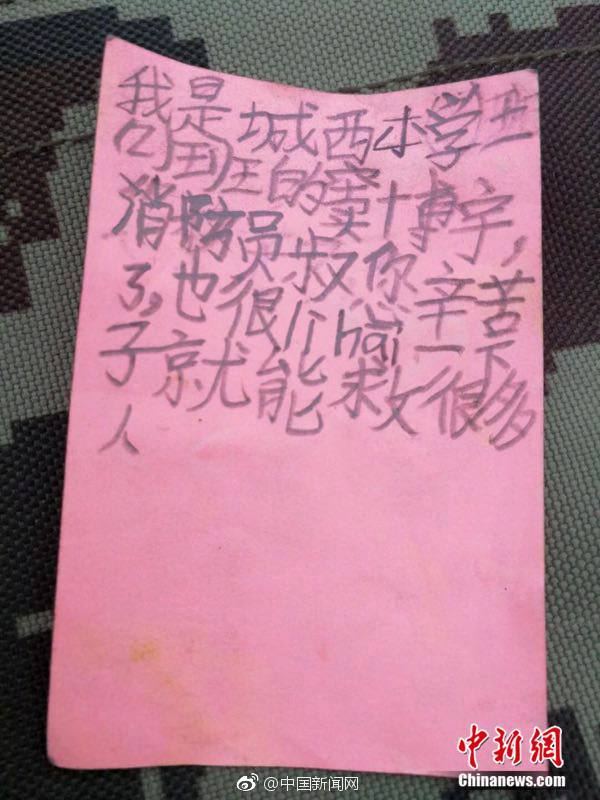 我是城西小学
班的窦博宇，
消防员叔你辛苦
了，也很厉hai一下
子就能救很多
人
@中国新闻网
中新網
Chinanews.com